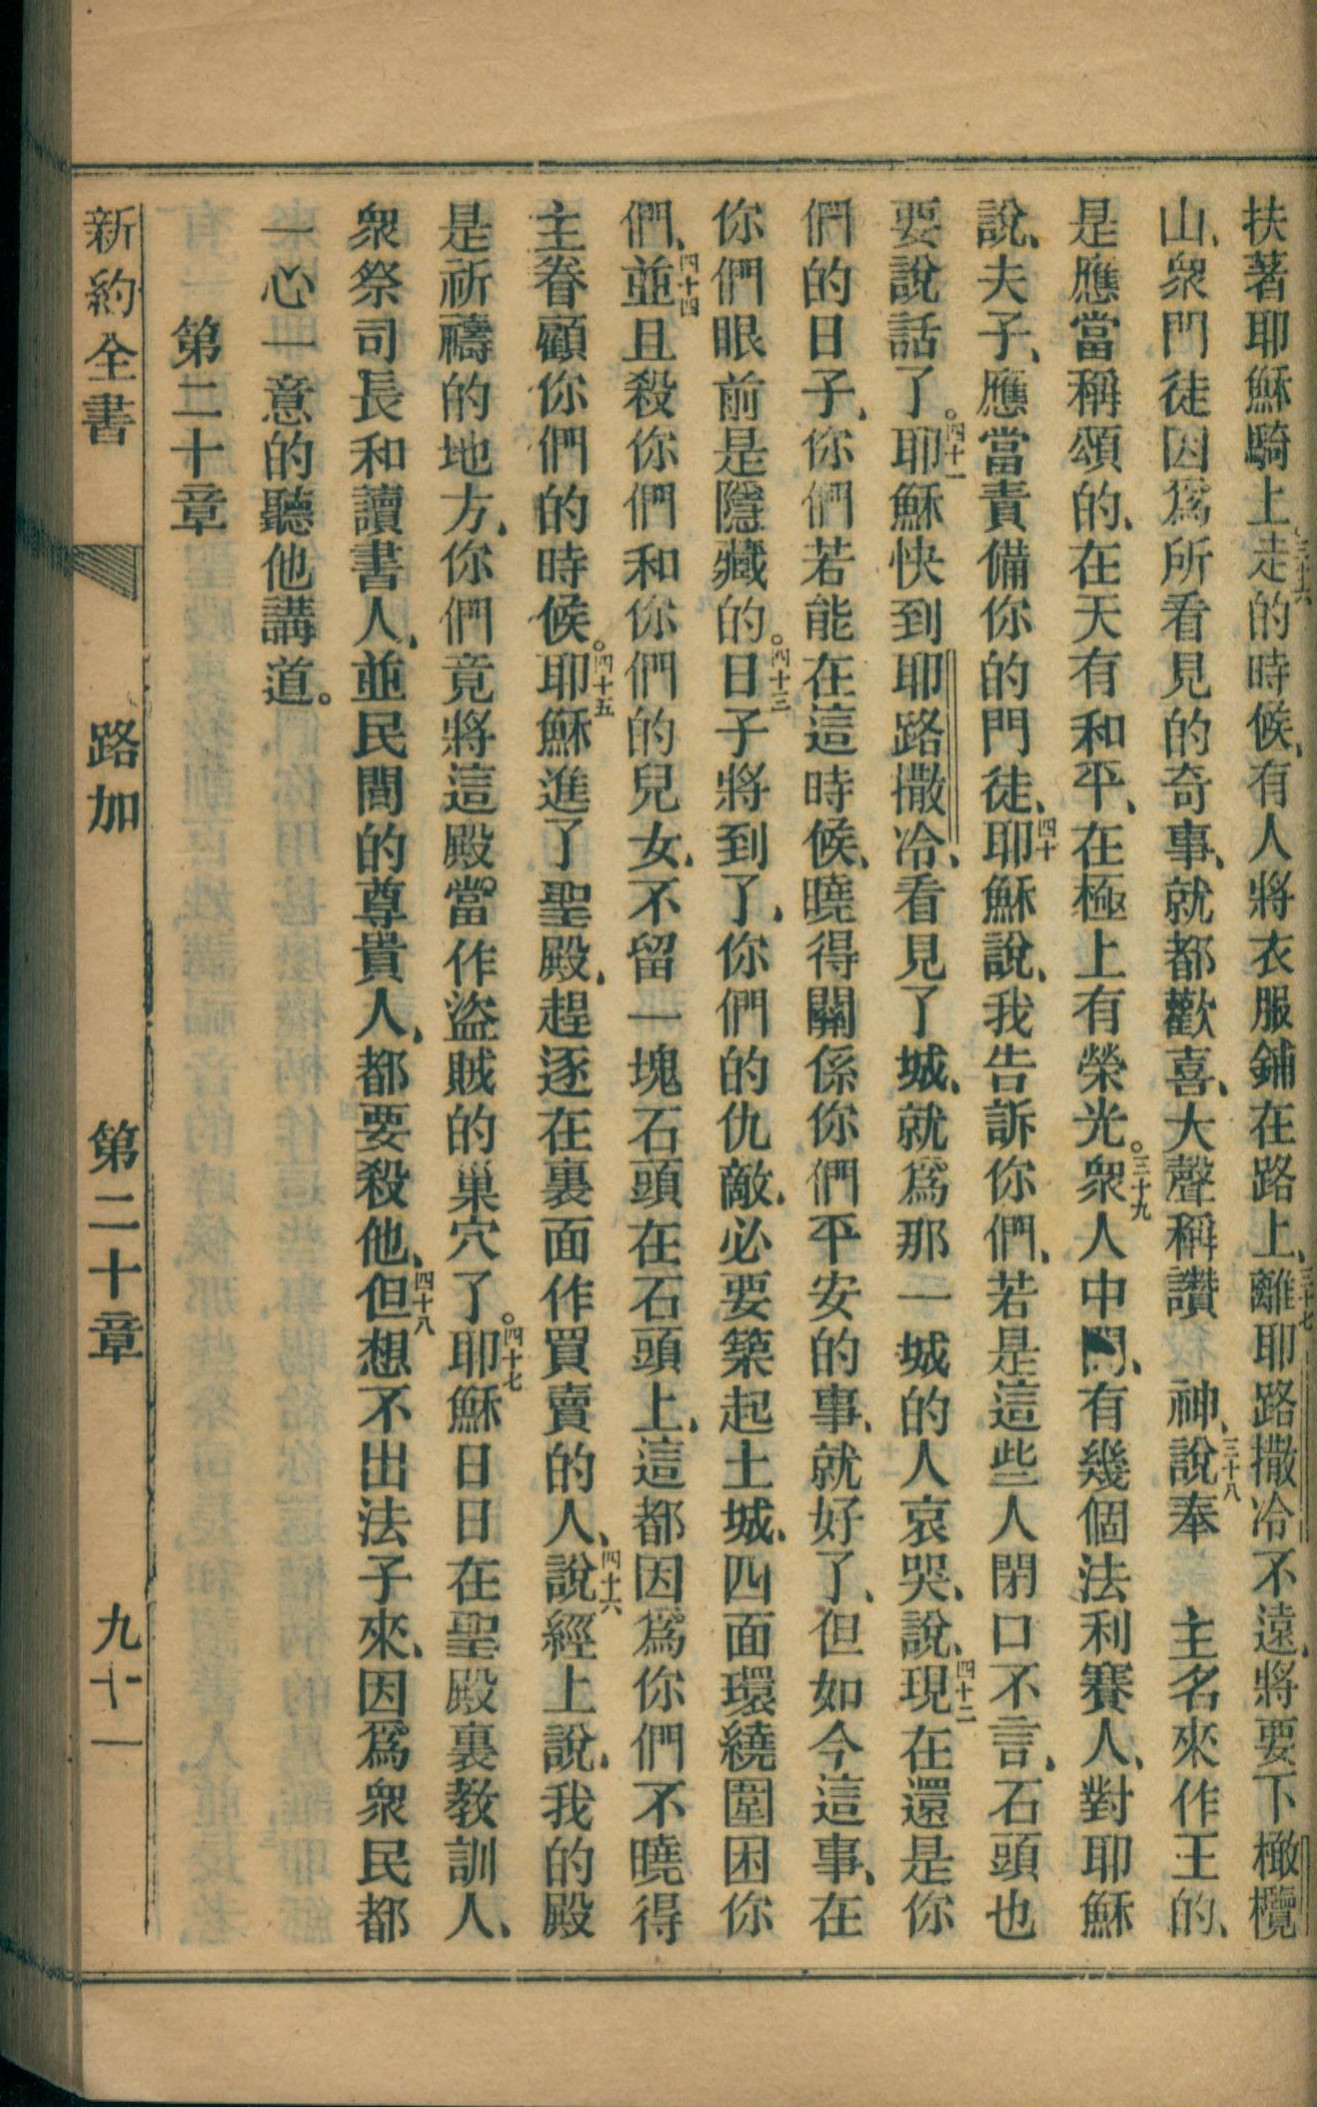 扶著耶穌騎上。三十六走的時候、有人將衣服鋪在路上、三十七離耶路撒冷不遠、將要下橄欖
山、衆門徒因爲所看見的奇事、就都歡喜、大聲稱讚　神、三十八說奉　主名來作王的、
是應當稱頌的、在天有和平、在極上有榮光。三十九衆人中間、有幾個法利賽人、對耶穌
說、夫子、應當責備你的門徒、四十耶穌說、我告訴你們、若是這些人閉口不言、石頭也
要說話了。四十一耶穌快到耶路撒冷、看見了城、就爲那一城的人哀哭、說、四十二現在還是你
們的日子、你們若能在這時候、曉得關係你們平安的事、就好了、但如今這事、在
你們眼前是隱藏的。四十三日子將到了、你們的仇敵、必要築起土城、四面環繞圍困你
們、四十四並且殺你們和你們的兒女、不留一塊石頭在石頭上、這都因爲你們不曉得
主眷顧你們的時候。四十五耶穌進了聖殿、趕逐在裏面作買賣的人、四十六說經上說、我的殿
是祈禱的地方、你們竟將這殿當作盜賊的巢穴了。四十七耶穌日日在聖殿裏教訓人、
衆祭司長和讀書人、並民間的尊貴人、都要殺他、四十八但想不出法子來、因爲衆民都
一心一意的聽他講道。
第二十章
新約全書　路加　第二十章　九十一